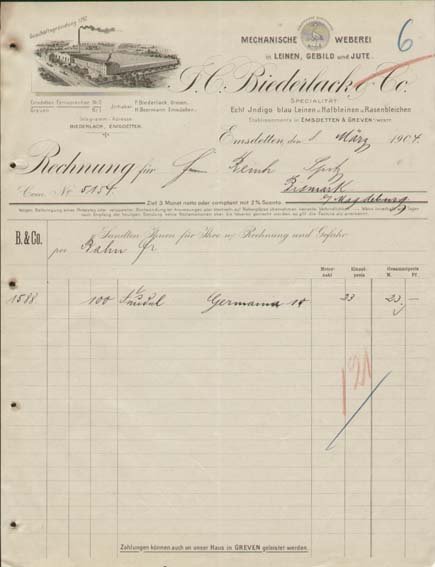 Geschäftsgründung 1797
6
MECHANISCHE WEBEREI
in LEINEN, GEBILD und JUTE.
J. C. Biederlack & Co.
SPECIALITÄT:
Echt Jndigo blau Leinen u. Halbleinen u. Rasenbleichen
Etablissements in EMSDETTEN & GREVEN i/WESTF.
Emsdetten Fernsprecher
Greven
Jnhaber
F. Biederlack, Greven.
H. Beermann Emsdetten.
Telegramm-Adresse
BIEDERLACK, EMSDETTEN.
Emsdetten, den März 1904
Rechnung für Herrn
Bismark
Conv. No 5154
b/ Magdeburg
Ziel 3 Monat netto oder comptant mit 2% Sconto.
B. & Co.
Sandten Jhnen für Jhre w/ Rechnung und Gefahr
per Bahn
Meter-zahl
Einzel-preis
Gesammtpreis
M. Pf.
1588 100 Germania 10 23 23 —
121
Zahlungen können auch an unser Haus in GREVEN geleistet werden.